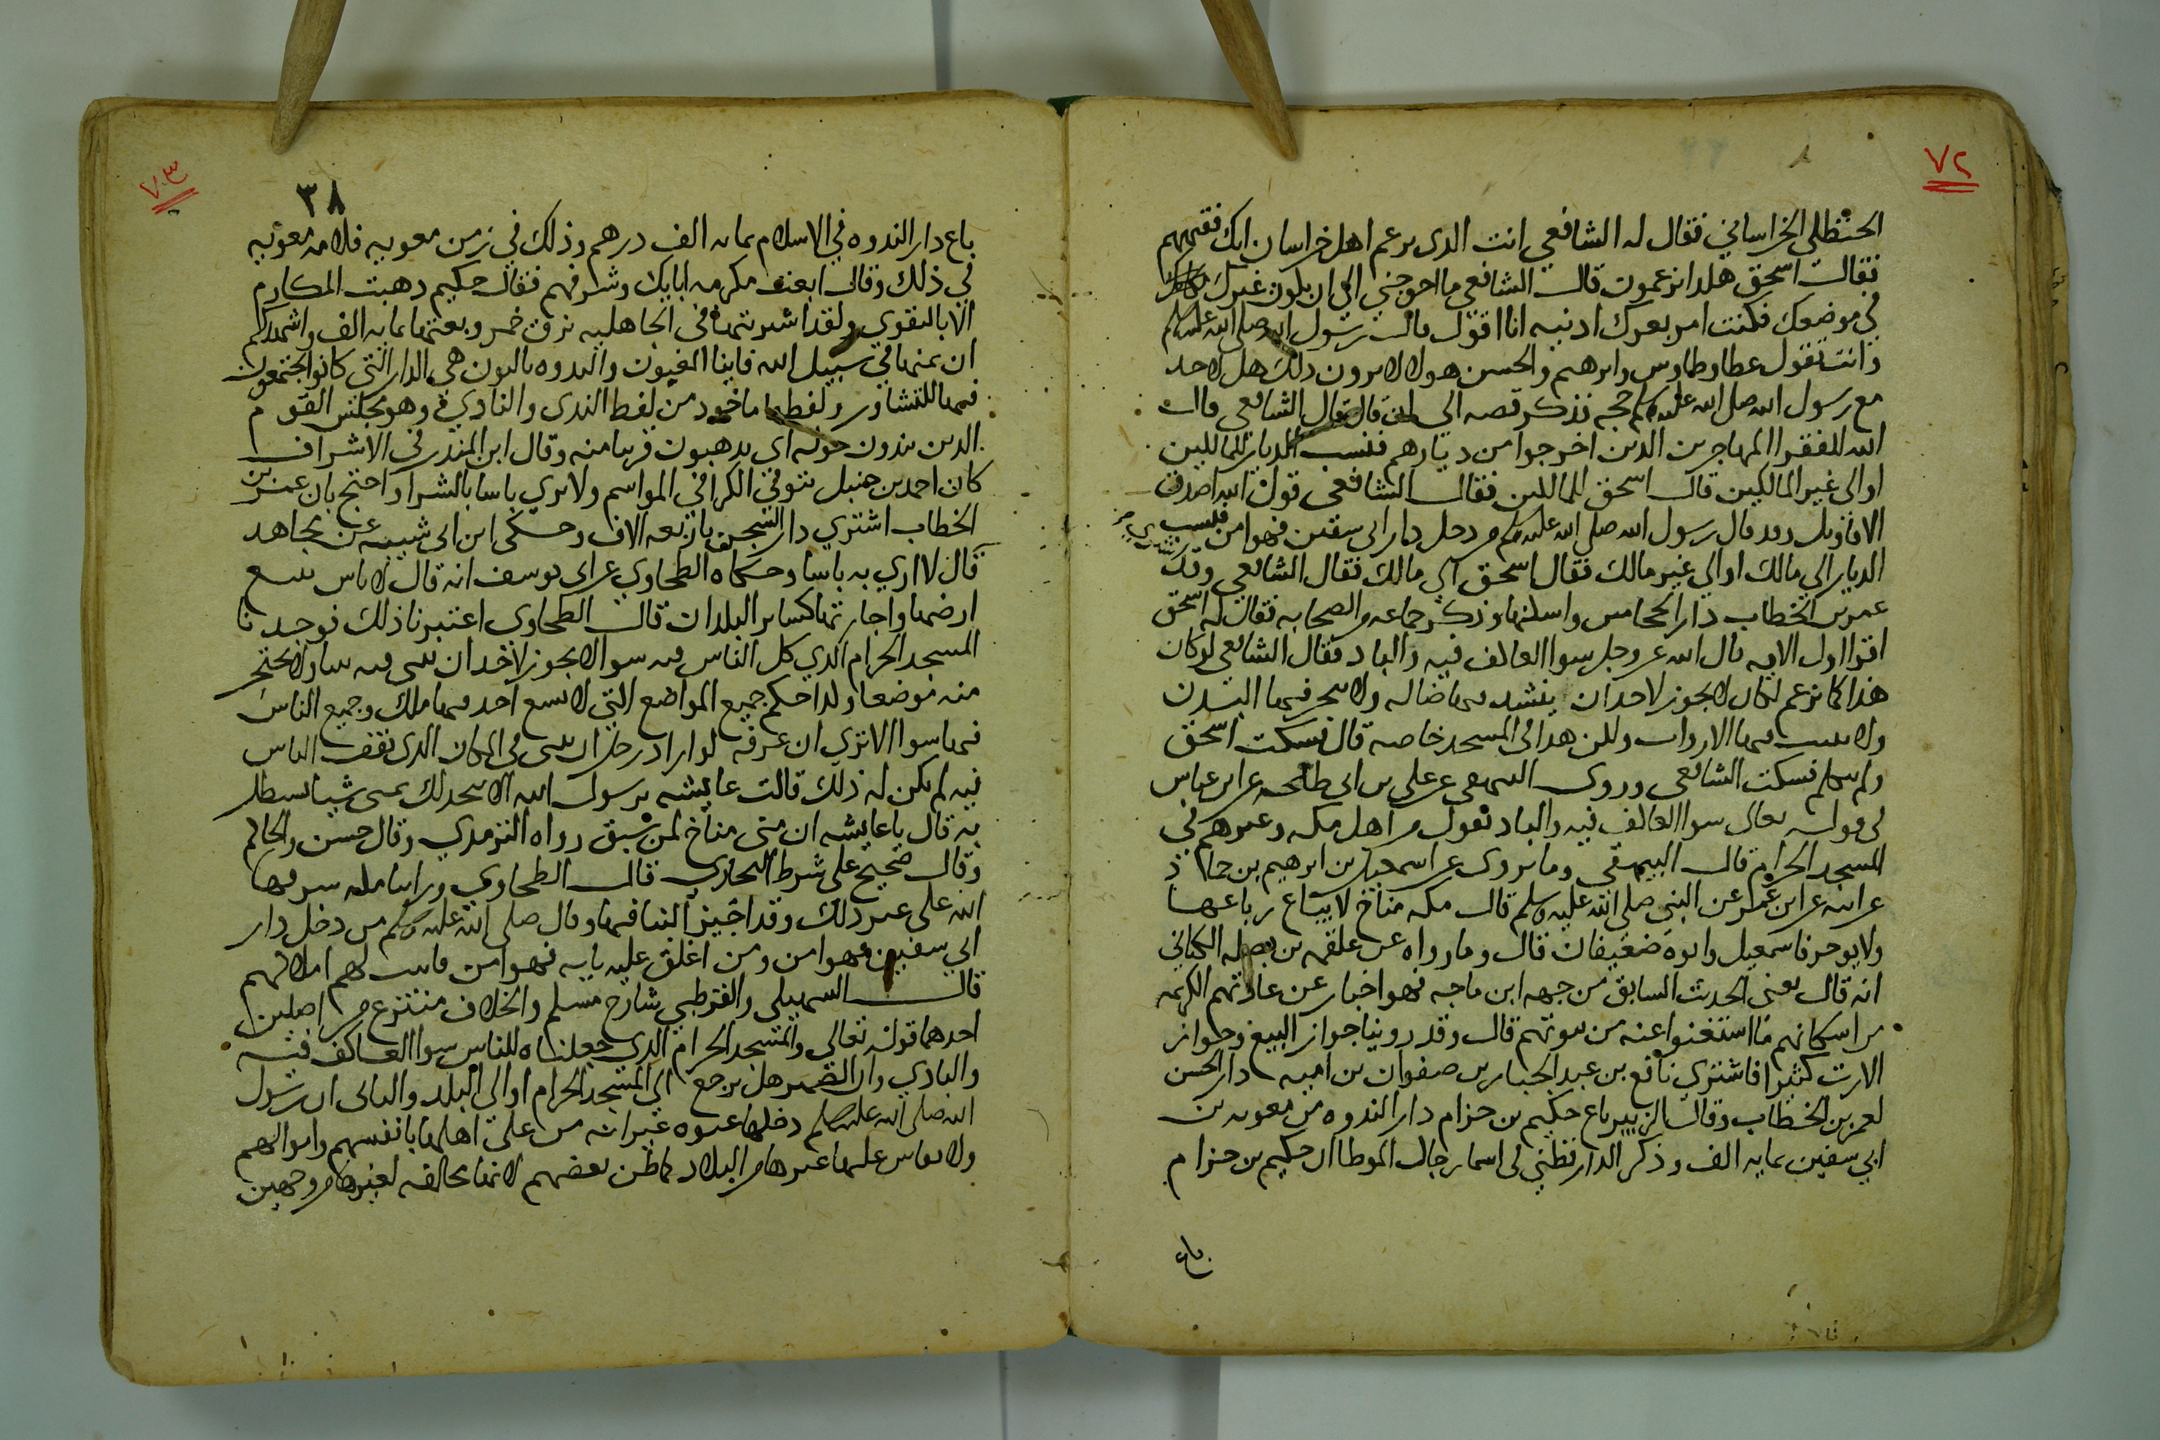 ٧٢
الحنظلي الخراساني فقال له الشافعي انت الذي يزعم اهل خراسان انك فقيههم
فقال اسحق هكذا يزعمون قال الشافعي ما احوجني الى ان يكون غيرك
في موضعك فكنت امر بعرك ادنيه انا اقول قال رسول الله صلى الله عليه وسلم
وانت تقول عطا وطاوس وابرهيم والحسن هولا لا يرون ذلك هل لاحد
مع رسول الله صلى الله عليه وسلم حجه فذكر قصه الى ان قال فقال الشافعي قال
الله للفقرا المهاجرين الذين اخرجوا من ديارهم فنسب الديار للمالكين
او الى غير المالكين قال اسحق للمالكين فقال الشافعي قول الله اصدق
الاقاويل وقد قال رسول الله صلى الله عليه وسلم من دخل دار ابي سفين فهو امن فنسب
الديار الي مالك او الي غير مالك فقال اسحق الى مالك فقال الشافعي وقد اشترى
عمر بن الخطاب دار الحجامين واسكنها وذكر جماعه من الصحابه فقال له اسحق
اقرا اول الايه قال الله عز وجل سوا العاكف فيه والباد فقال الشافعي لو كان
هذا كما تزعم لكان لا يجوز لاحد ان ينشد فيها ضاله ولا ينحر فيها البدن
ولا يلقي فيها الارواث ولكن هذا في المسجد خاصه قال فسكت اسحق
ولم يتكلم فسكت الشافعي وروى البيهقي عن علي بن ابي طلحه عن ابن عباس
في قوله تعالى سوا العاكف فيه والباد يقول من اهل مكه وغيرهم في
المسجد الحرام قال البيهقي وما يروى عن اسمعيل بن ابرهيم بن مهاجر
عن ابيه عن ابن عمر عن النبي صلى الله عليه وسلم قال مكه مناخ لا يباع رباعها
ولا يوجر فاسمعيل وابوه ضعيفان قال وما رواه عن علقمه بن نضله الكناني
انه قال يعني الحديث السابق من جهه ابن ماجه فهو اخبار عن عادتهم الكريمه
من اسكانهم ما استغنوا عنه من بيوتهم قال وقد روينا جواز البيع وجواز
الارث كثيرا فاشترى نافع بن عبد الحارث من صفوان بن اميه دار السجن
لعمر بن الخطاب وقال الزبير باع حكيم بن حزام دار الندوه من معويه بن
ابي سفين بمايه الف وذكر الدارقطني في اسما رجال الموطا ان حكيم بن حزام
باع
٧٣
٣٨
باع دار الندوه في الاسلام بمايه الف درهم وذلك في زمن معويه فلامه معويه
في ذلك وقال ابعت مكرمه ابايك وشرفهم فقال حكيم ذهبت المكارم
الا بالتقوى ولقد اشتريتها في الجاهليه بزق خمر وبعتها بمايه الف واشهدكم
ان ثمنها في سبيل الله فاينا المغبون والندوه بالنون هي الدار التي كانوا يجتمعون
فيها للتشاور ولفظها ماخوذ من لفظ الندى والنادي وهو مجلس القوم
الذين يندون حوله اي يذهبون قريبا منه وقال ابن المنذر في الاشراف
كان احمد بن حنبل يتوقى الكرا في المواسم ولا يرى باسا بالشرا واحتج بان عمر بن
الخطاب اشترى دار السجن باربعه الاف وحكى ابن ابي شيبه عن مجاهد
قال لا ارى به باسا وحكاه الطحاوي عن ابي يوسف انه قال لا باس ببيع
ارضها واجارتها كساير البلدان قال الطحاوي اعتبرنا ذلك فوجدنا
المسجد الحرام الذي كل الناس فيه سوا لا يجوز لاحد ان يبني فيه بنا ولا يحتجر
منه موضعا ولذا حكم جميع المواضع التي لا يسع احد فيها ملك وجميع الناس
فيها سوا الا ترى ان عرفه لو اراد رجل ان يبني في المكان الذي تقف الناس
فيه لم يكن له ذلك قالت عايشه يا رسول الله الا نتخذ لك بمنى شيا يستظل
به قال يا عايشه ان منى مناخ لمن سبق رواه الترمذي وقال حسن والحاكم
وقال صحيح على شرط البخاري قال الطحاوي وراينا مكه شرفها
الله على غير ذلك وقد اجيز البنا فيها وقال صلى الله عليه وسلم من دخل دار
ابي سفين فهو امن ومن اغلق عليه بابه فهو امن فاثبت لهم املاكهم
قال السهيلي والقرطبي شارح مسلم والخلاف منتزع من اصلين
احدهما قوله تعالى والمسجد الحرام الذي جعلناه للناس سوا العاكف فيه
والبادي وان الضمير هل يرجع الى المسجد الحرام او الى البلد والثاني ان رسول
الله صلى الله عليه وسلم دخلها عنوه غير انه من على اهلها بانفسهم واموالهم
ولا يقاس عليها غيرها من البلاد كما ظن بعضهم لانها مخالفه لغيرها من وجهين